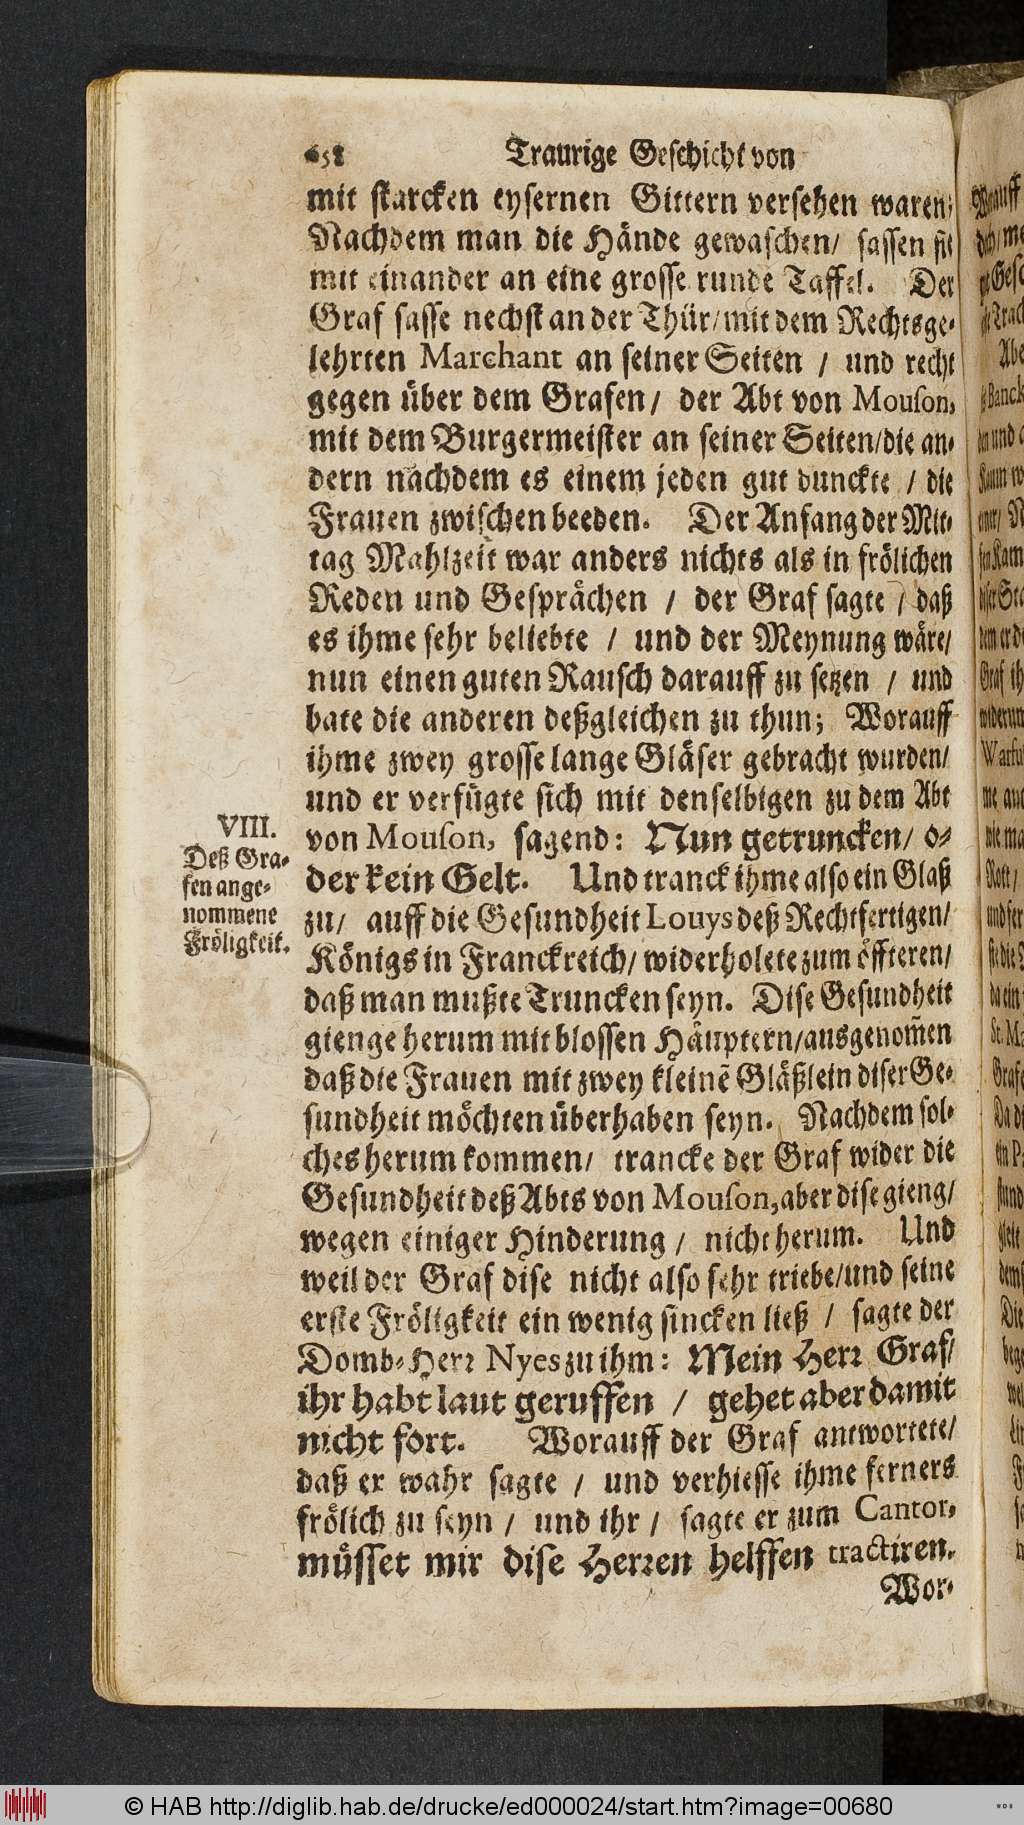 658 Traurige Geschicht von
mit starcken eysernen Gittern versehen waren;
Nachdem man die Hände gewaschen/ sassen sie
mit einander an eine grosse runde Taffel. Der
Graf sasse nechst an der Thür/ mit dem Rechtsge-
lehrten Marchant an seiner Seiten / und recht
gegen über dem Grafen/ der Abt von Mouson,
mit dem Burgermeister an seiner Seiten/ die an-
dern nachdem es einem jeden gut dunckte / die
Frauen zwischen beeden. Der Anfang der Mit-
tag Mahlzeit war anders nichts als in frölichen
Reden und Gesprächen / der Graf sagte / daß
es ihme sehr beliebte / und der Meynung wäre/
nun einen guten Rausch darauff zu setzen / und
bate die anderen deßgleichen zu thun; Worauff
ihme zwey grosse lange Gläser gebracht wurden/
und er verfügte sich mit denselbigen zu dem Abt
von Mouson, sagend: Nun getruncken/ o-
der kein Gelt. Und tranck ihme also ein Glaß
zu/ auff die Gesundheit Louys deß Rechtfertigen/
Königs in Franckreich/ widerholete zum öffteren/
daß man mußte Truncken seyn. Dise Gesundheit
gienge herum mit blossen Häuptern/ ausgenom̃en
daß die Frauen mit zwey kleinẽ Gläßlein diser Ge-
sundheit möchten überhaben seyn. Nachdem sol-
ches herum kommen/ trancke der Graf wider die
Gesundheit deß Abts von Mouson, aber dise gieng/
wegen einiger Hinderung / nicht herum. Und
weil der Graf dise nicht also sehr triebe/ und seine
erste Fröligkeit ein wenig sincken ließ / sagte der
Domb-Herr Nyes zu ihm: Mein Herr Graf/
ihr habt laut geruffen / gehet aber damit
nicht fort. Worauff der Graf antwortete/
daß er wahr sagte / und verhiesse ihme ferners
frölich zu seyn / und ihr / sagte er zum Cantor,
müsset mir dise Herren helffen tractiren.
Wor-
VIII.
Deß Gra-
fen ange-
nommene
Fröligkeit.
© HAB http://diglib.hab.de/drucke/ed000024/start.htm?image=00680